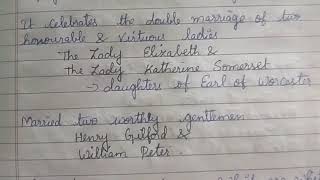 It celebrates the double marriage of two
honourable & virtuous ladies
The Lady Elizabeth &
The Lady Katherine Somerset
→ daughters of Earl of Worcester
Married two worthly gentlemen
Henry Gilford &
William Peter.